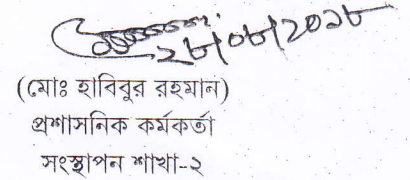 ২৮/০৮/২০১৮
(মোঃ হাবিবুর রহমান)
প্রশাসনিক কর্মকর্তা
সংস্থাপন শাখা-২